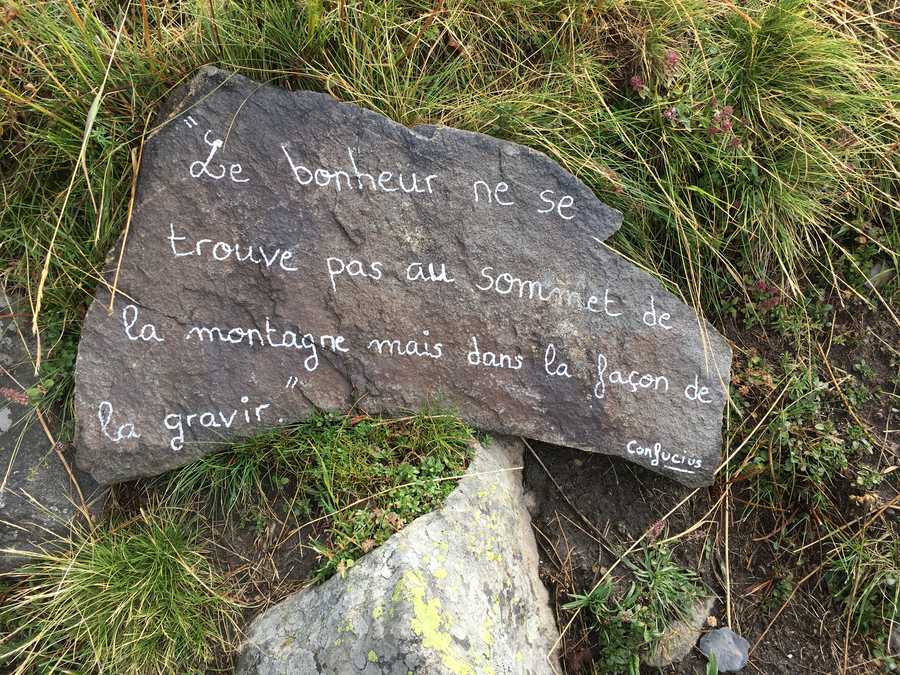 "Le bonheur ne se
trouve pas au sommet de
la montagne mais dans la façon de
la gravir."
Confucius